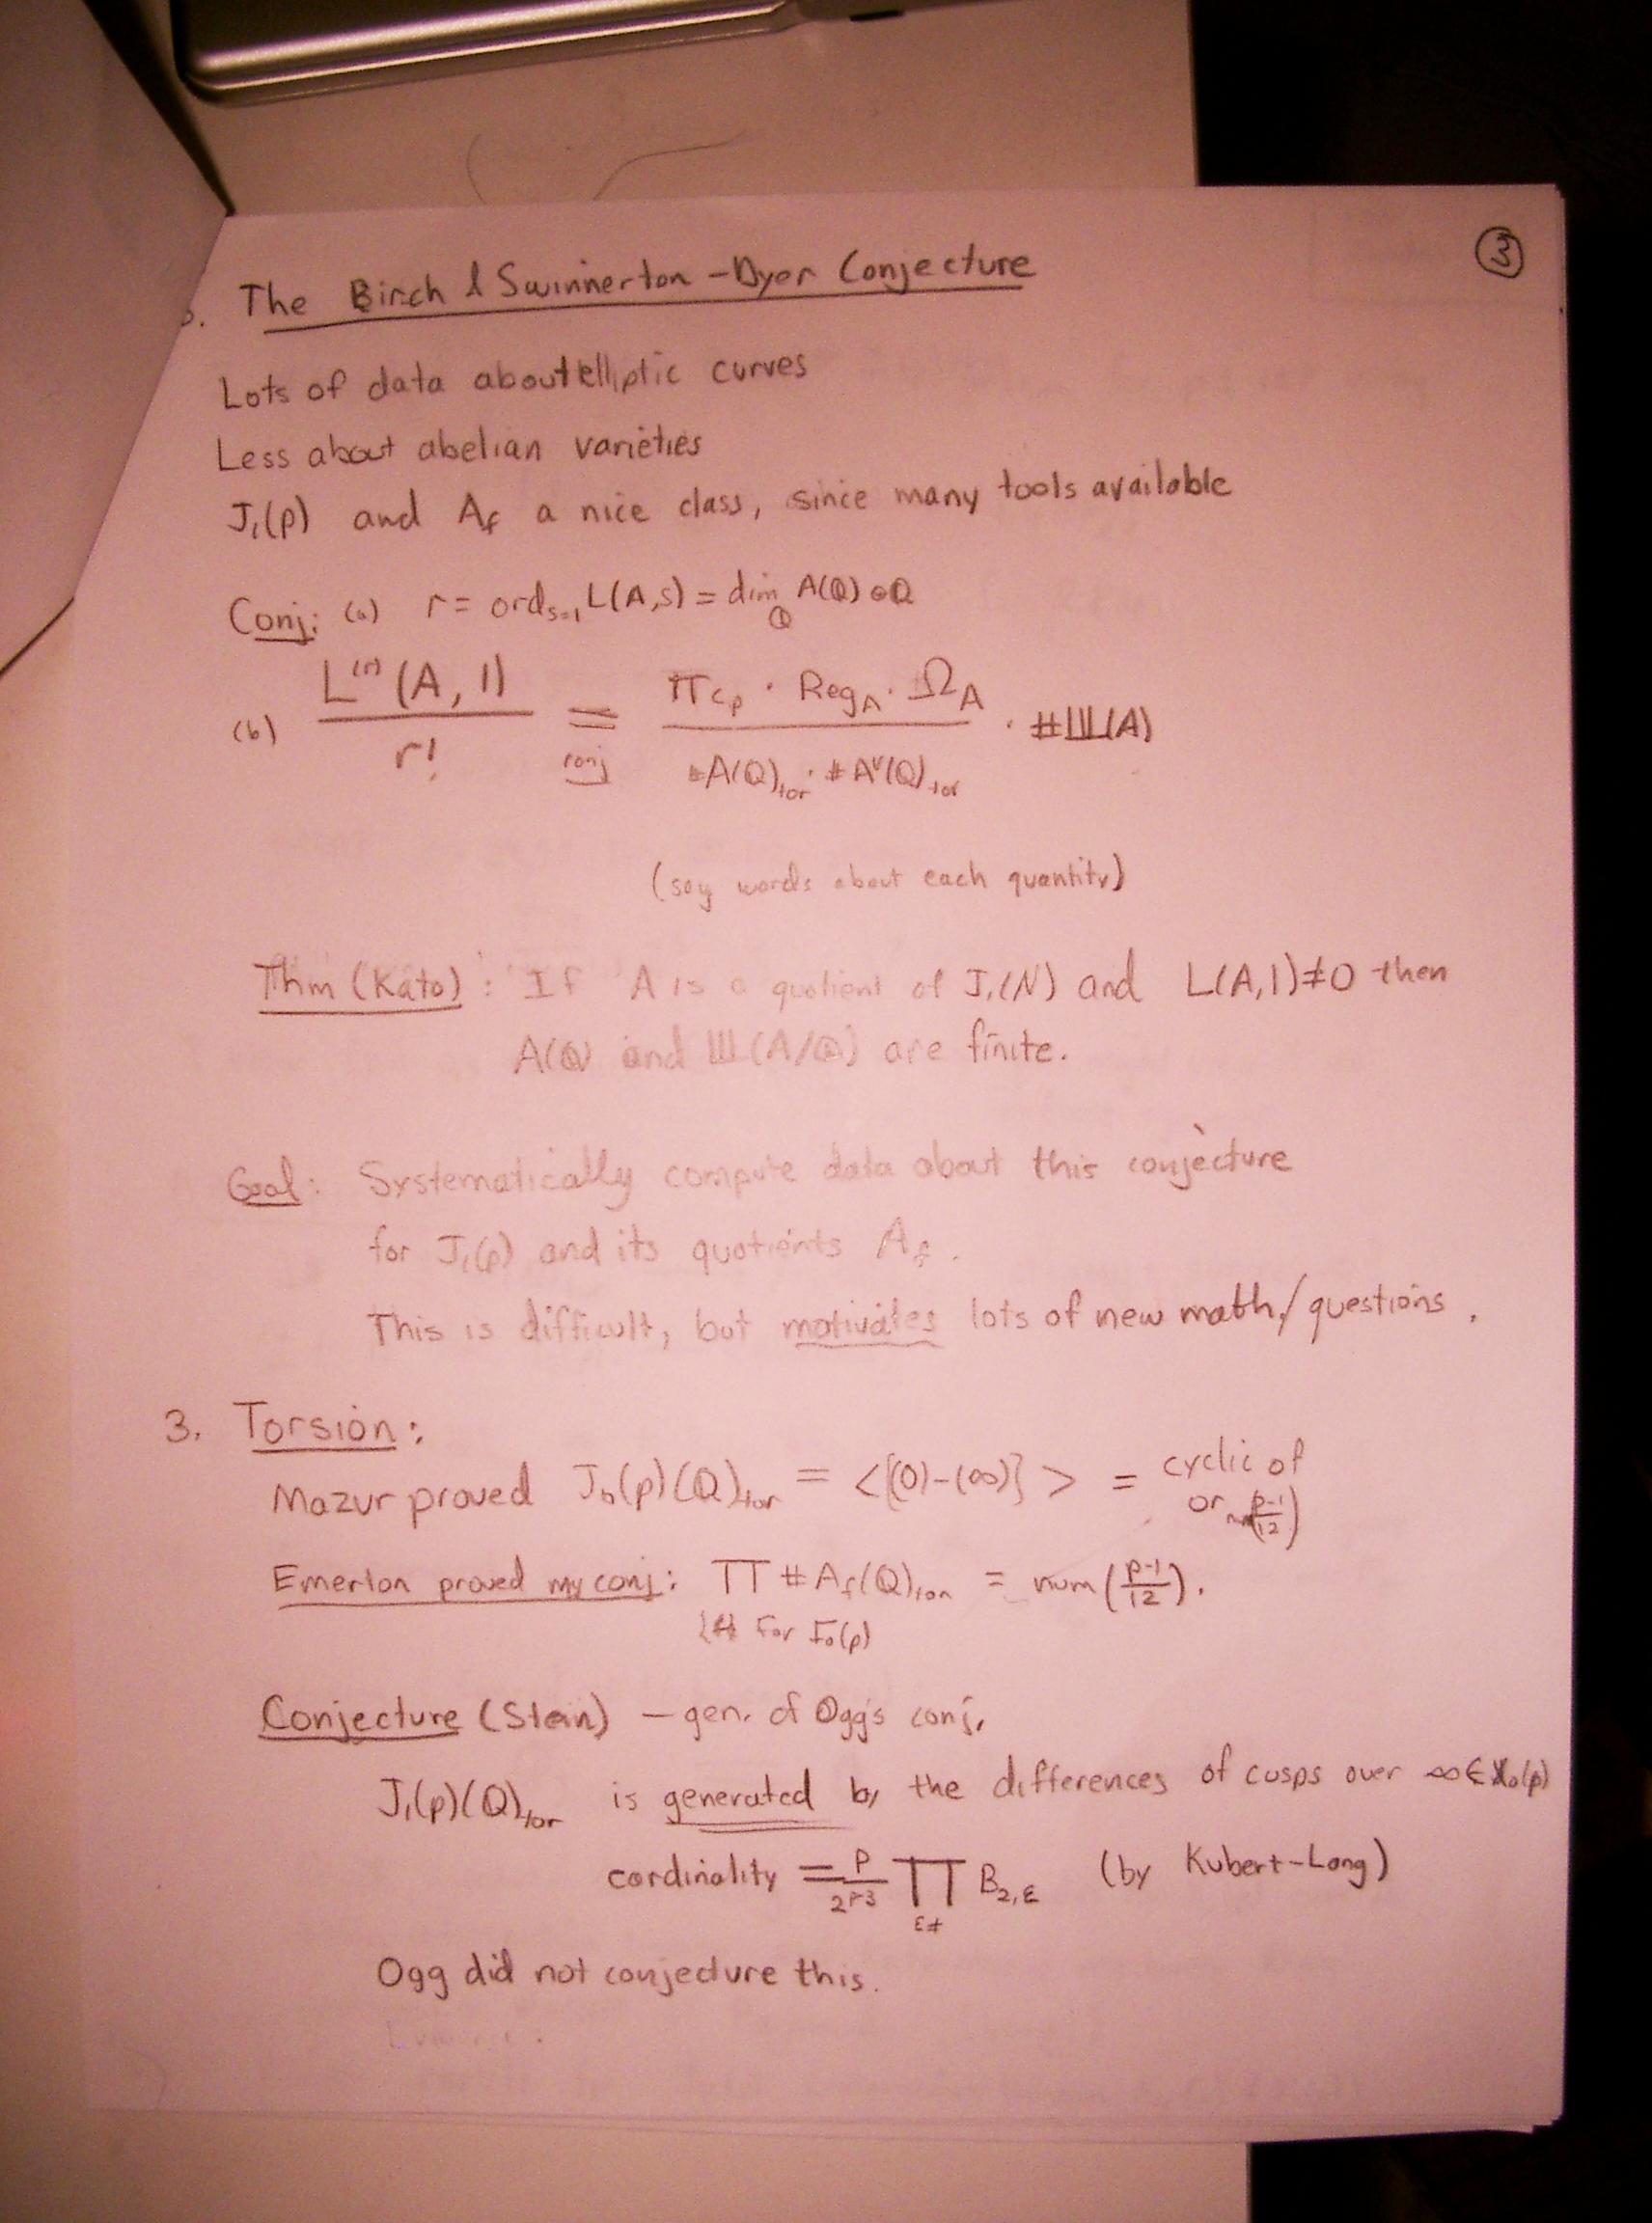 ③
The Birch & Swinnerton-Dyer Conjecture
Lots of data about elliptic curves
Less about abelian varieties
J₁(p) and A_f a nice class, since many tools available
Conj: (a) r = ord_{s=1} L(A,s) = dim_ℚ A(ℚ)⊗ℚ
(b) L^{(r)}(A, 1) / r! =_{conj} (∏c_p · Reg_A · Ω_A) / (#A(ℚ)_{tor} · #A^∨(ℚ)_{tor}) · #Ш(A)
(say words about each quantity)
Thm (Kato): If A is a quotient of J₁(N) and L(A,1)≠0 then
A(ℚ) and Ш(A/ℚ) are finite.
Goal: Systematically compute data about this conjecture
for J₁(p) and its quotients A_f.
This is difficult, but motivates lots of new math/questions.
3. Torsion:
Mazur proved J₀(p)(ℚ)_{tor} = <{(0)-(∞)}> = cyclic of
or num(p-1/12)
Emerton proved my conj: ∏ #A_f(ℚ)_{tor} = num(p-1/12).
for Γ₀(p)
Conjecture (Stein) – gen. of Ogg's conj.
J₁(p)(ℚ)_{tor} is generated by the differences of cusps over ∞∈X₀(p)
cardinality = p/2^{p-3} ∏_{ε≠} B_{2,ε} (by Kubert-Lang)
Ogg did not conjecture this.